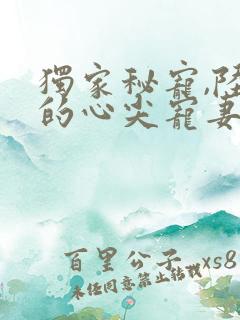 獨家秘寵,陸
的心尖寵妻
百里公子_xs8
未任同意禁止转载